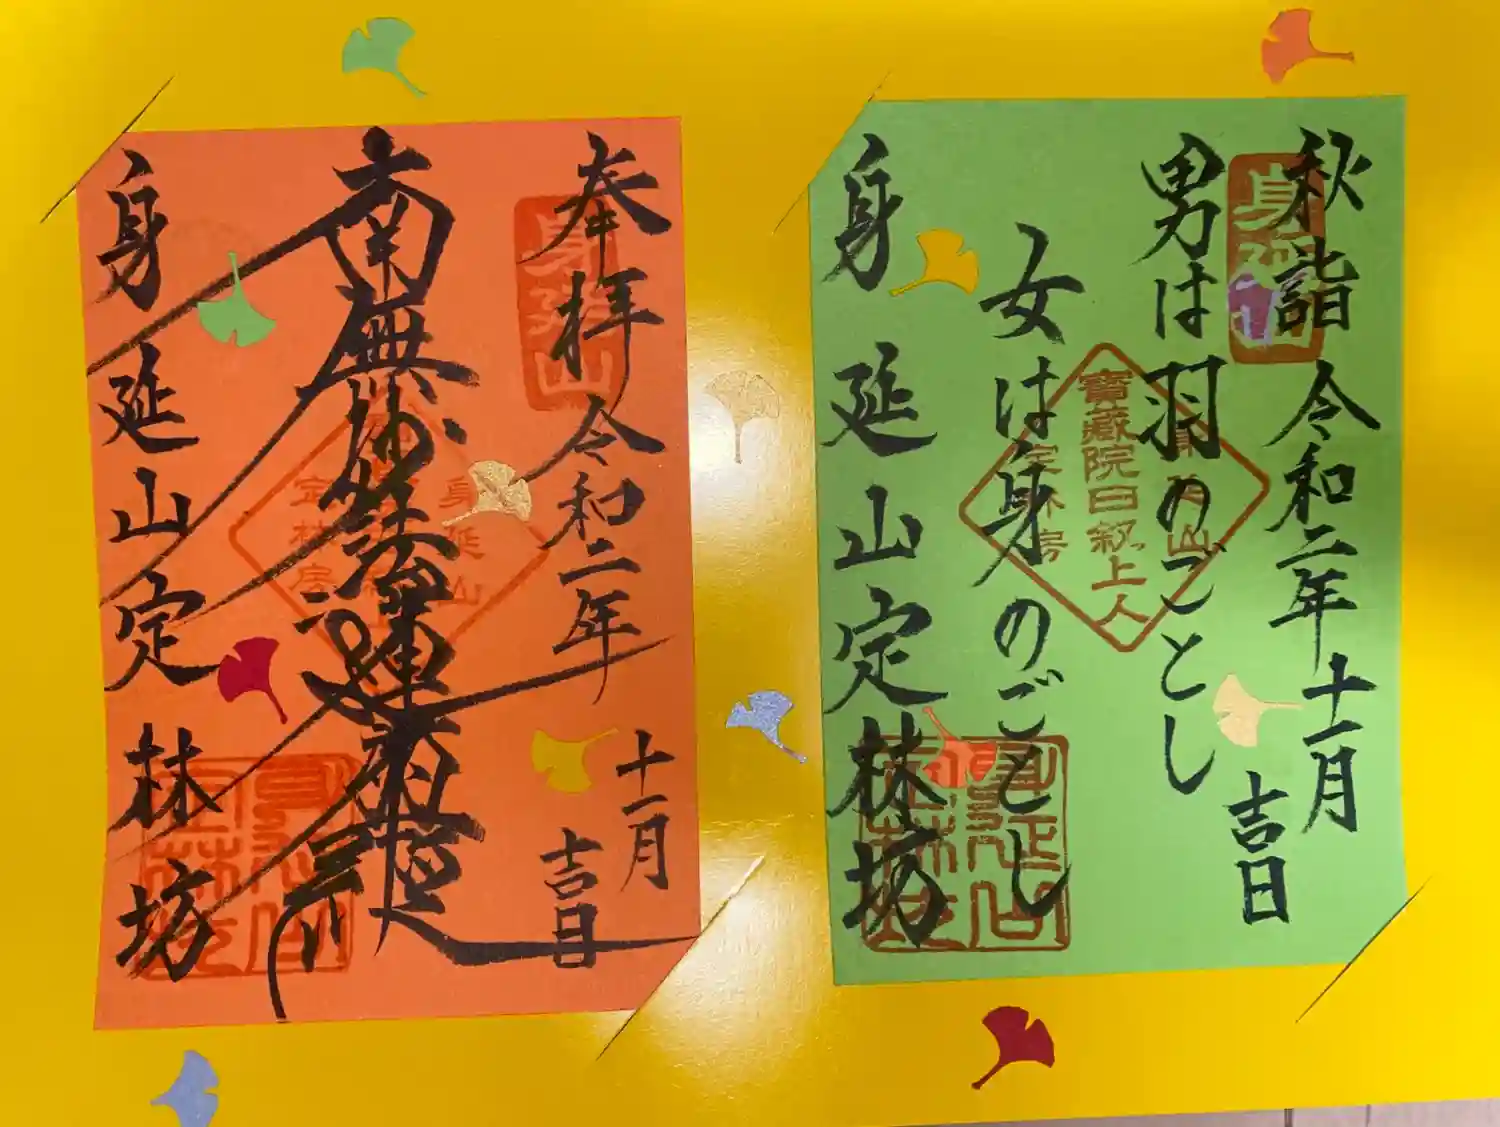 奉拝 令和二年
十一月
吉日
南無妙法蓮華経
身延山定林坊
身延山
定林房
秋詣 令和二年十一月
吉日
男は羽のごとし
女は身のごとし
身延山定林坊
身延山
寶藏院日叙上人
定林房